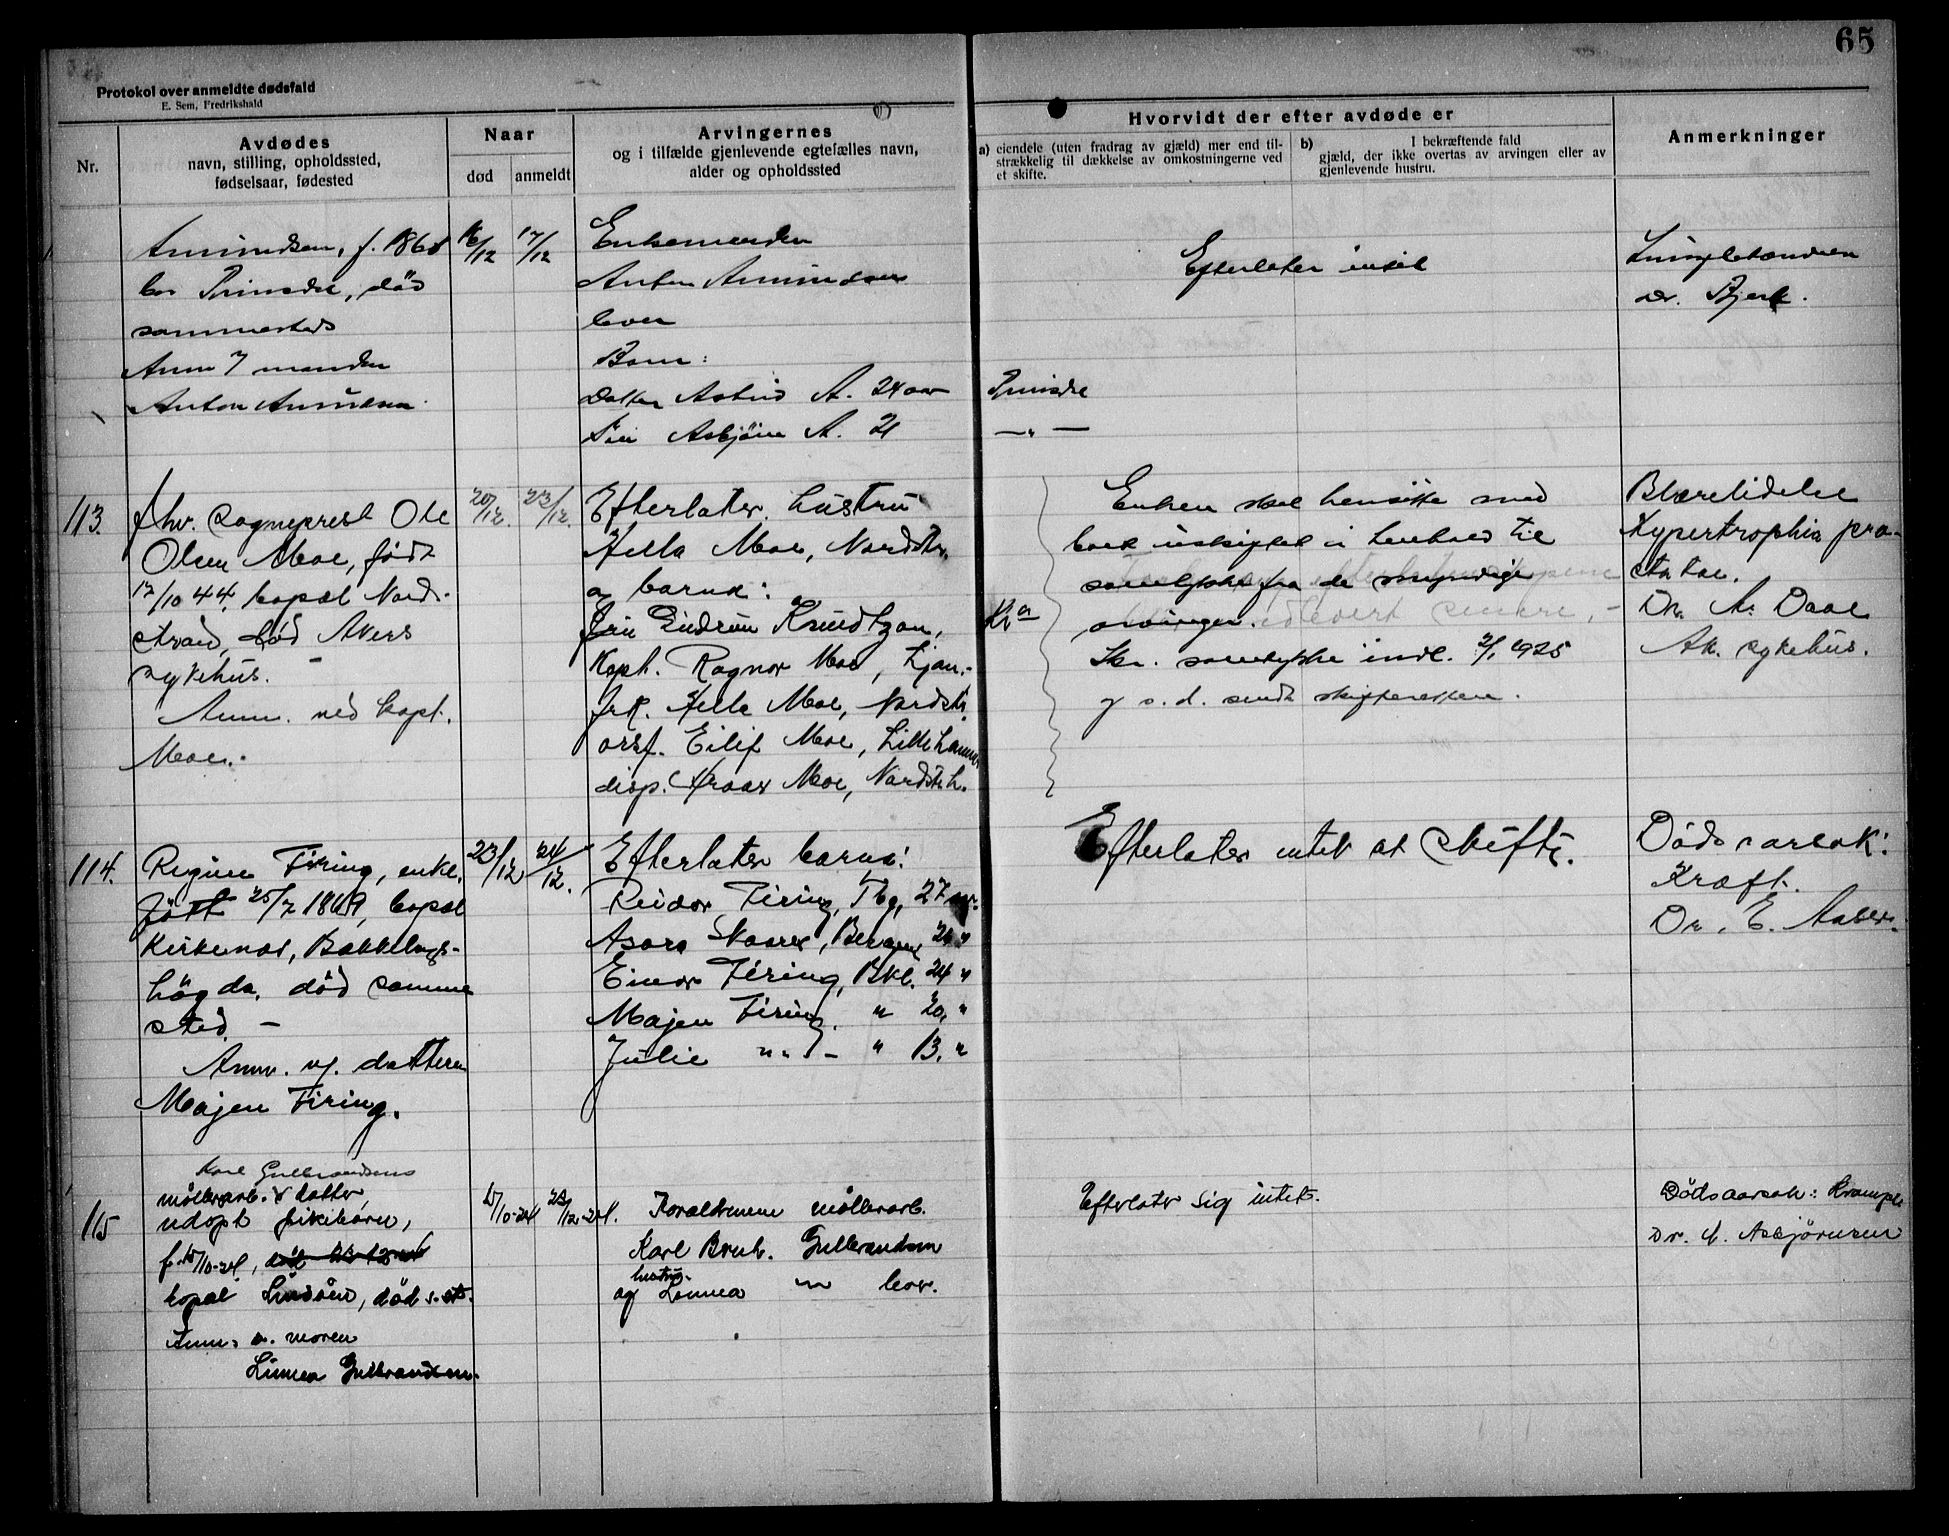 65
Protokol over anmeldte dødsfald
E. Sem, Fredrikshald
Nr.
Avdødes
navn, stilling, opholdssted,
fødselsaar, fødested
Naar
død
anmeldt
Arvingernes
og i tilfælde gjenlevende egtefælles navn,
alder og opholdssted
Hvorvidt der efter avdøde er
a) eiendele (uten fradrag av gjæld) mer end til-
strækkelig til dækkelse av omkostningerne ved
et skifte.
b) I bekræftende fald
gjæld, der ikke overtas av arvingen eller av
gjenlevende hustru.
Anmerkninger
Amundsen, f.
bor Prinsdal, død
sammesteds
Anm. manden
Anton Amundsen
16/12
17/12
Enkemanden
Anton Amundsen
lever
Barn:
Datter Astrid A. 24 aar
Søn Asbjørn A. 21
Prinsdal
— " —
Efterlater intet
Lungebetændelse
Dr. Bjerk.
113.
fhv. sogneprest Ole
Olsen Moe, født
17/10 44, bopæl Nord-
strand, død Akers
sykehus. —
Anm. ved kapt.
Moe.
20/12.
23/12.
Efterlater hustru
Helle Moe, Nordstr.
og barna:
Fru Gudrun Knudtzon,
Kapt. Ragnar Moe, Ljan.
frk. Helle Moe, Nordstr.
orsf. Eilif Moe, Lillehammer
disp. Moe, Nordstr.
Kra
Enken skal hensitte med
boet uskiftet i henhold til
samtykke fra de myndige
arvinger.
Skr. samtykke indl. 2/1 1925
og s. d. sendt skifteretten.
Blærelidelse
Hypertrophia pro-
statae.
Dr. A. Daae
Ak. sykehus.
114.
Regine Firing, enke,
født 25/7 1869, bopæl
Kirkenes, Bækkelags-
høgda, død samme
sted. —
Anm. v/ datteren
Majen Firing.
23/12
24/12.
Efterlater barna:
Reidar Firing, Tbg, 27 aar.
Asora Skaarer, Bergen 26 "
Einar Firing, Bkl. 24 "
Majen Firing. " 20, "
Julie " - " 13, "
Efterlater intet at skifte.
Dødsaarsak:
Kræft.
Dr. E. Aaser.
115
Karl Gulbrandsens
møllerarb. datter,
udøpt pikebarn,
f. 15/10-24,
bopæl død s. st.
Anm. a. moren
Linnea Gulbrandsen.
17/10-24
23/12-24.
Forældrene møllerarb.
Karl Gulbrandsen
hustru
og Linnea — " — lever.
Efterlater sig intet.
Dødsaarsak: Krampe
Dr. Asbjørnsen